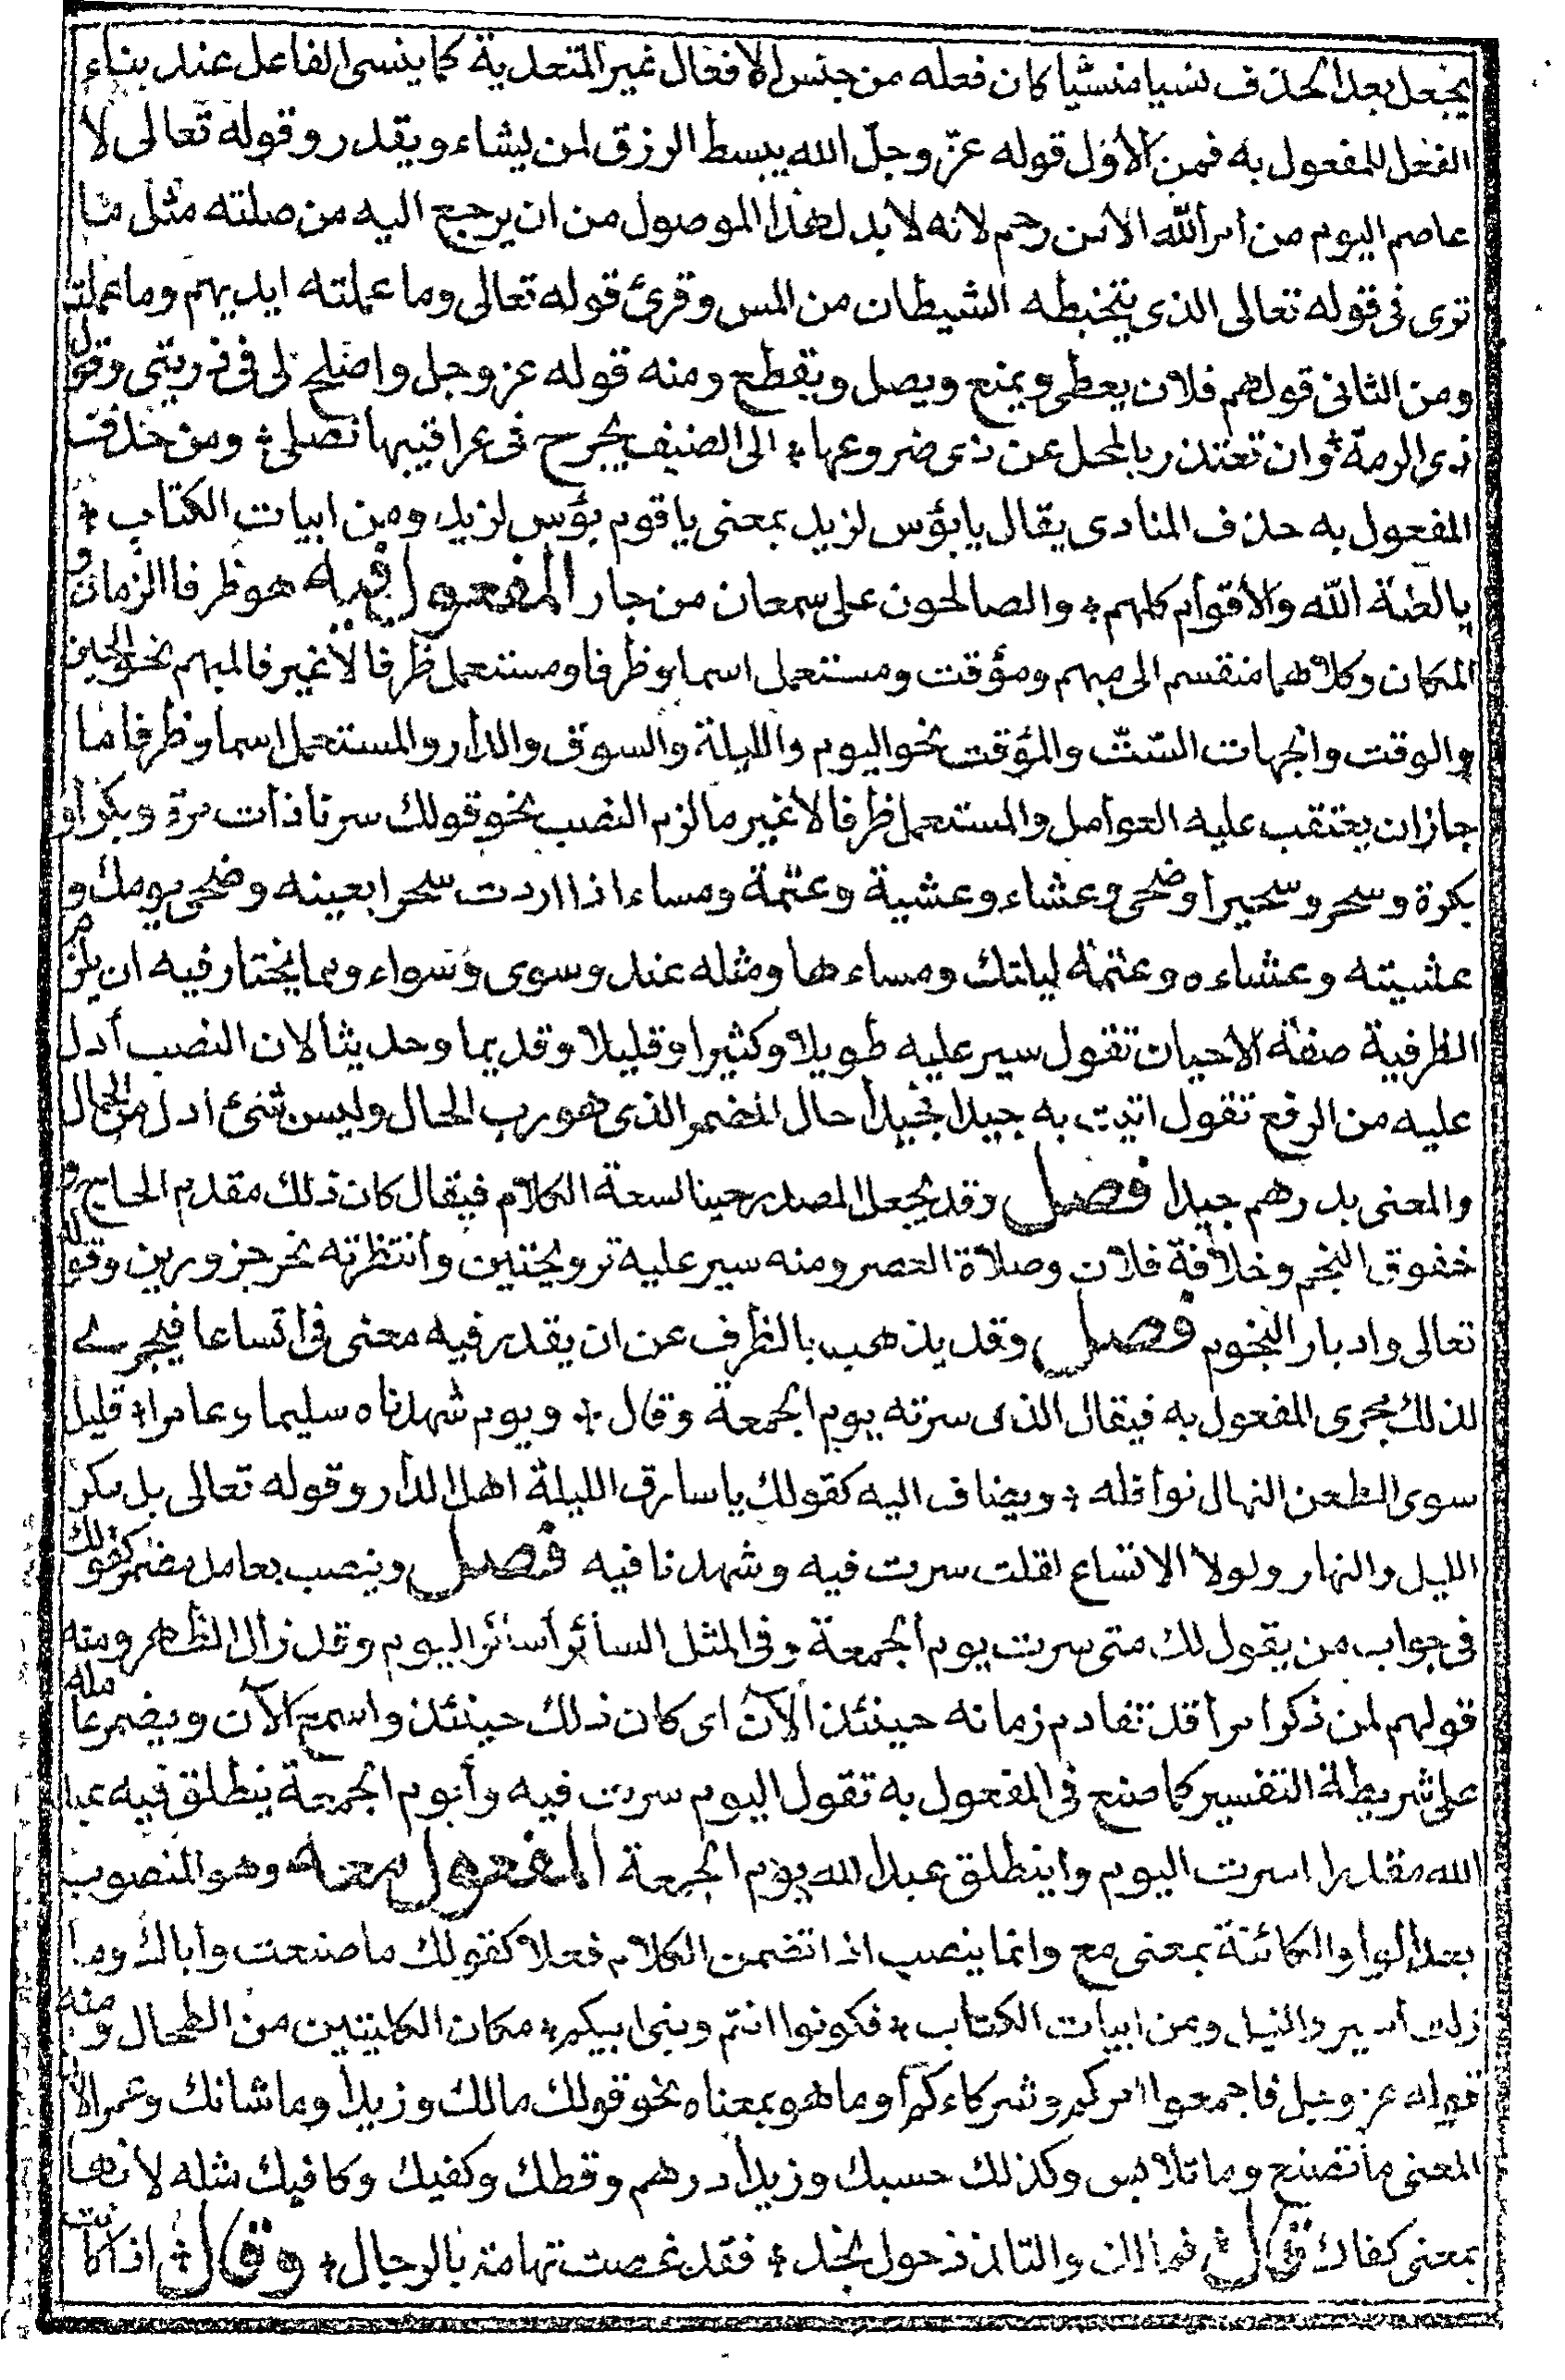 يجعل بعد الحذف نسيا منسيا كان فعله من جنس الافعال غير المتعدية كما ينسى الفاعل عند بناء
الفعل للمفعول به فمن الاول قوله عز وجل الله يبسط الرزق لمن يشاء ويقدر وقوله تعالى لا
عاصم اليوم من امر الله الا من رحم لانه لا بد لهذا الموصول من ان يرجع اليه من صلته مثل ما
ترى فى قوله تعالى الذى يتخبطه الشيطان من المس وقرئ قوله تعالى وما عملته ايديهم وما عملت
ومن الثانى قولهم فلان يعطى ويمنع ويصل ويقطع ومنه قوله عز وجل واصلح لى فى ذريتى وقول
ذى الرمة ؛ وان تعتذر بالمحل عن ذى ضروعها ؛ الى الضيف يجرح فى عراقيبها نصلى ؛ ومن حذف
المفعول به حذف المنادى يقال يا بؤس لزيد بمعنى يا قوم بؤس لزيد ومن ابيات الكتاب ؛
يا لعنة الله والأقوام كلهم ؛ والصالحون على سمعان من جار المفعول فيه هو ظرفا الزمان و
المكان وكلاهما منقسم الى مبهم ومؤقت ومستعمل اسما وظرفا ومستعمل ظرفا لا غير فالمبهم نحو الحين
والوقت والجهات الستّ والمؤقت نحو اليوم والليلة والسوق والدار والمستعمل اسما وظرفا ما
جاز ان يعتقب عليه العوامل والمستعمل ظرفا لا غير ما لزم النصب نحو قولك سرنا ذات مرة وبكرا و
بكرة وسحر وسحيرا وضحى وعشاء وعشية وعتمة ومساء اذا اردت سحرا بعينه وضحى يومك و
عشيته وعشاءه وعتمة ليلتك ومساءها ومثله عند وسوى وسواء ومما يختار فيه ان يلزم
الظرفية صفة الاحيان تقول سير عليه طويلا وكثيرا وقليلا وقديما وحديثا لان النصب أدل
عليه من الرفع تقول اتيت به جيدا فتجعل حال المضمر الذى هو رب الحال وليس شئ أدل من الحال
والمعنى بدرهم جيدا فصل وقد يجعل المصدر حينا لسعة الكلام فيقال كان ذلك مقدم الحاج و
خفوق النجم وخلافة فلان وصلاة العصر ومنه سير عليه ترويحتين وانتظرته نحر جزورين وقوله
تعالى وادبار النجوم فصل وقد يذهب بالظرف عن ان يقدر فيه معنى فى اتساعا فيجرے
لذلك مجرى المفعول به فيقال الذى سرته يوم الجمعة وقال ؛ ويوم شهدناه سليما وعامرا ؛ قليل
سوى الطعن النهال نوافله ؛ ويضاف اليه كقولك يا سارق الليلة اهل الدار وقوله تعالى بل مكر
الليل والنهار ولولا الاتساع لقلت سرت فيه وشهدنا فيه فصل وينصب بعامل مضمر كقولك
فى جواب من يقول لك متى سرت يوم الجمعة وفى المثل السائر أسائر اليوم وقد زال الظهر ومنه
قولهم لمن ذكر امرا قد تقادم زمانه حينئذ الآن اى كان ذلك حينئذ واسمع الآن ويضمر عامله
على شريطة التفسير كما صنع فى المفعول به تقول اليوم سرت فيه وأيوم الجمعة ينطلق فيه عبد
الله مقدرا اسرت اليوم واينطلق عبد الله يوم الجمعة المفعول معه وهو المنصوب
بعد الواو الكائنة بمعنى مع وانما ينصب اذا تضمن الكلام فعلا كقولك ما صنعت واباك وما
زلت أسير والنيل ومن ابيات الكتاب ؛ فكونوا انتم وبنى ابيكم ؛ مكان الكليتين من الطحال ومنه
قوله عز وجل فاجمعوا امركم وشركاءكم أو ما هو بمعناه نحو قولك مالك وزيدا وما شانك وعمرا لان
المعنى ما تصنع وما تلابس وكذلك حسبك وزيدا درهم وقطك وكفيك وكافيك مثله لانها
بمعنى كفاك قال ؛ فمالك والتلدد حول نجد ؛ فقد غصت تهامة بالرجال ؛ وقال ؛ اذا كانت